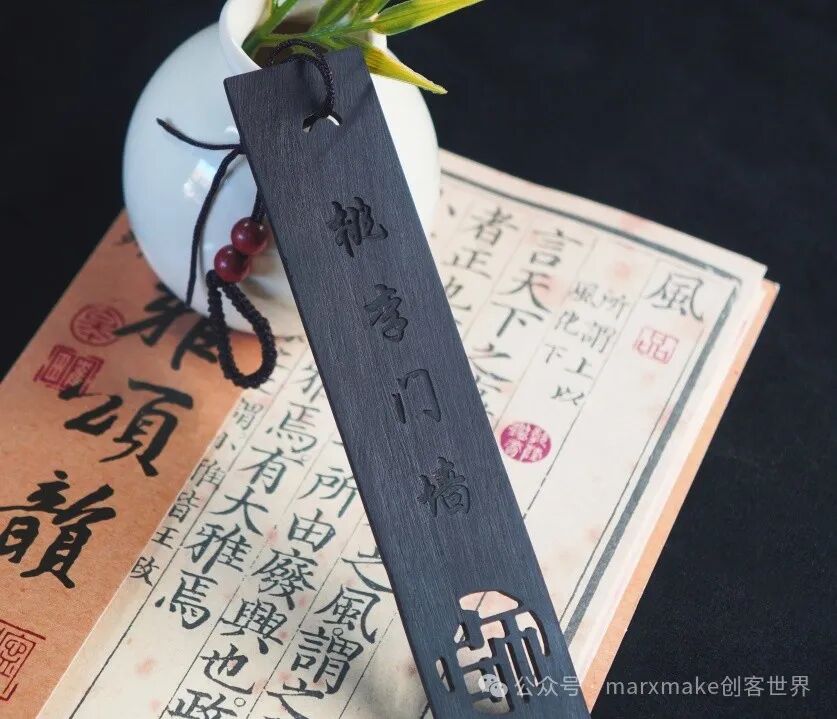 桃李门墙
师
風
所謂上以
風化下
言天下之
者正也
之風謂之
所由廢興也政
雅焉有大雅焉
謂小雅皆王政
雅頌韻
公众号 · marxmake创客世界